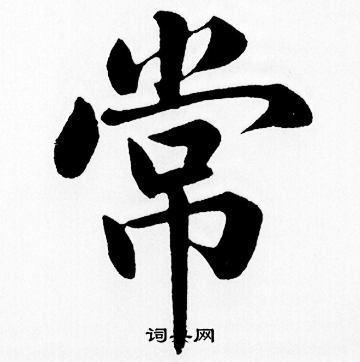 常
词典网